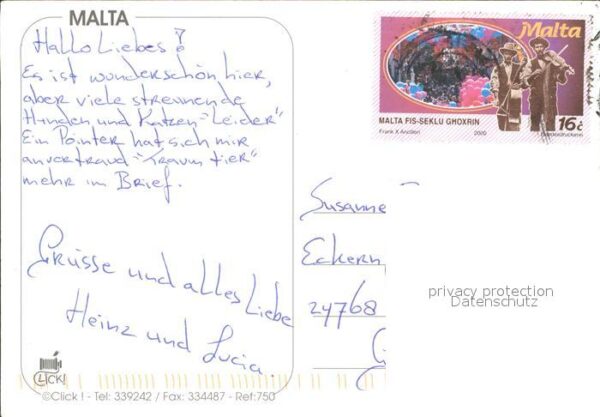 MALTA
Hallo Liebes!
Es ist wunderschön hier,
aber viele streunende
Hunden und Katzen "Leider"
Ein Pointer hat sich mir
anvertraud "Traum tier"
mehr im Brief.
Grüsse und alles Liebe
Heinz und Lucia.
CLICK!
©Click ! - Tel: 339242 / Fax: 334487 - Ref:750
Malta
MALTA FIS-SEKLU GHOXRIN
Frank X Ancilleri 2000
16c
Susanne
Eckern
24768
privacy protection
Datenschutz